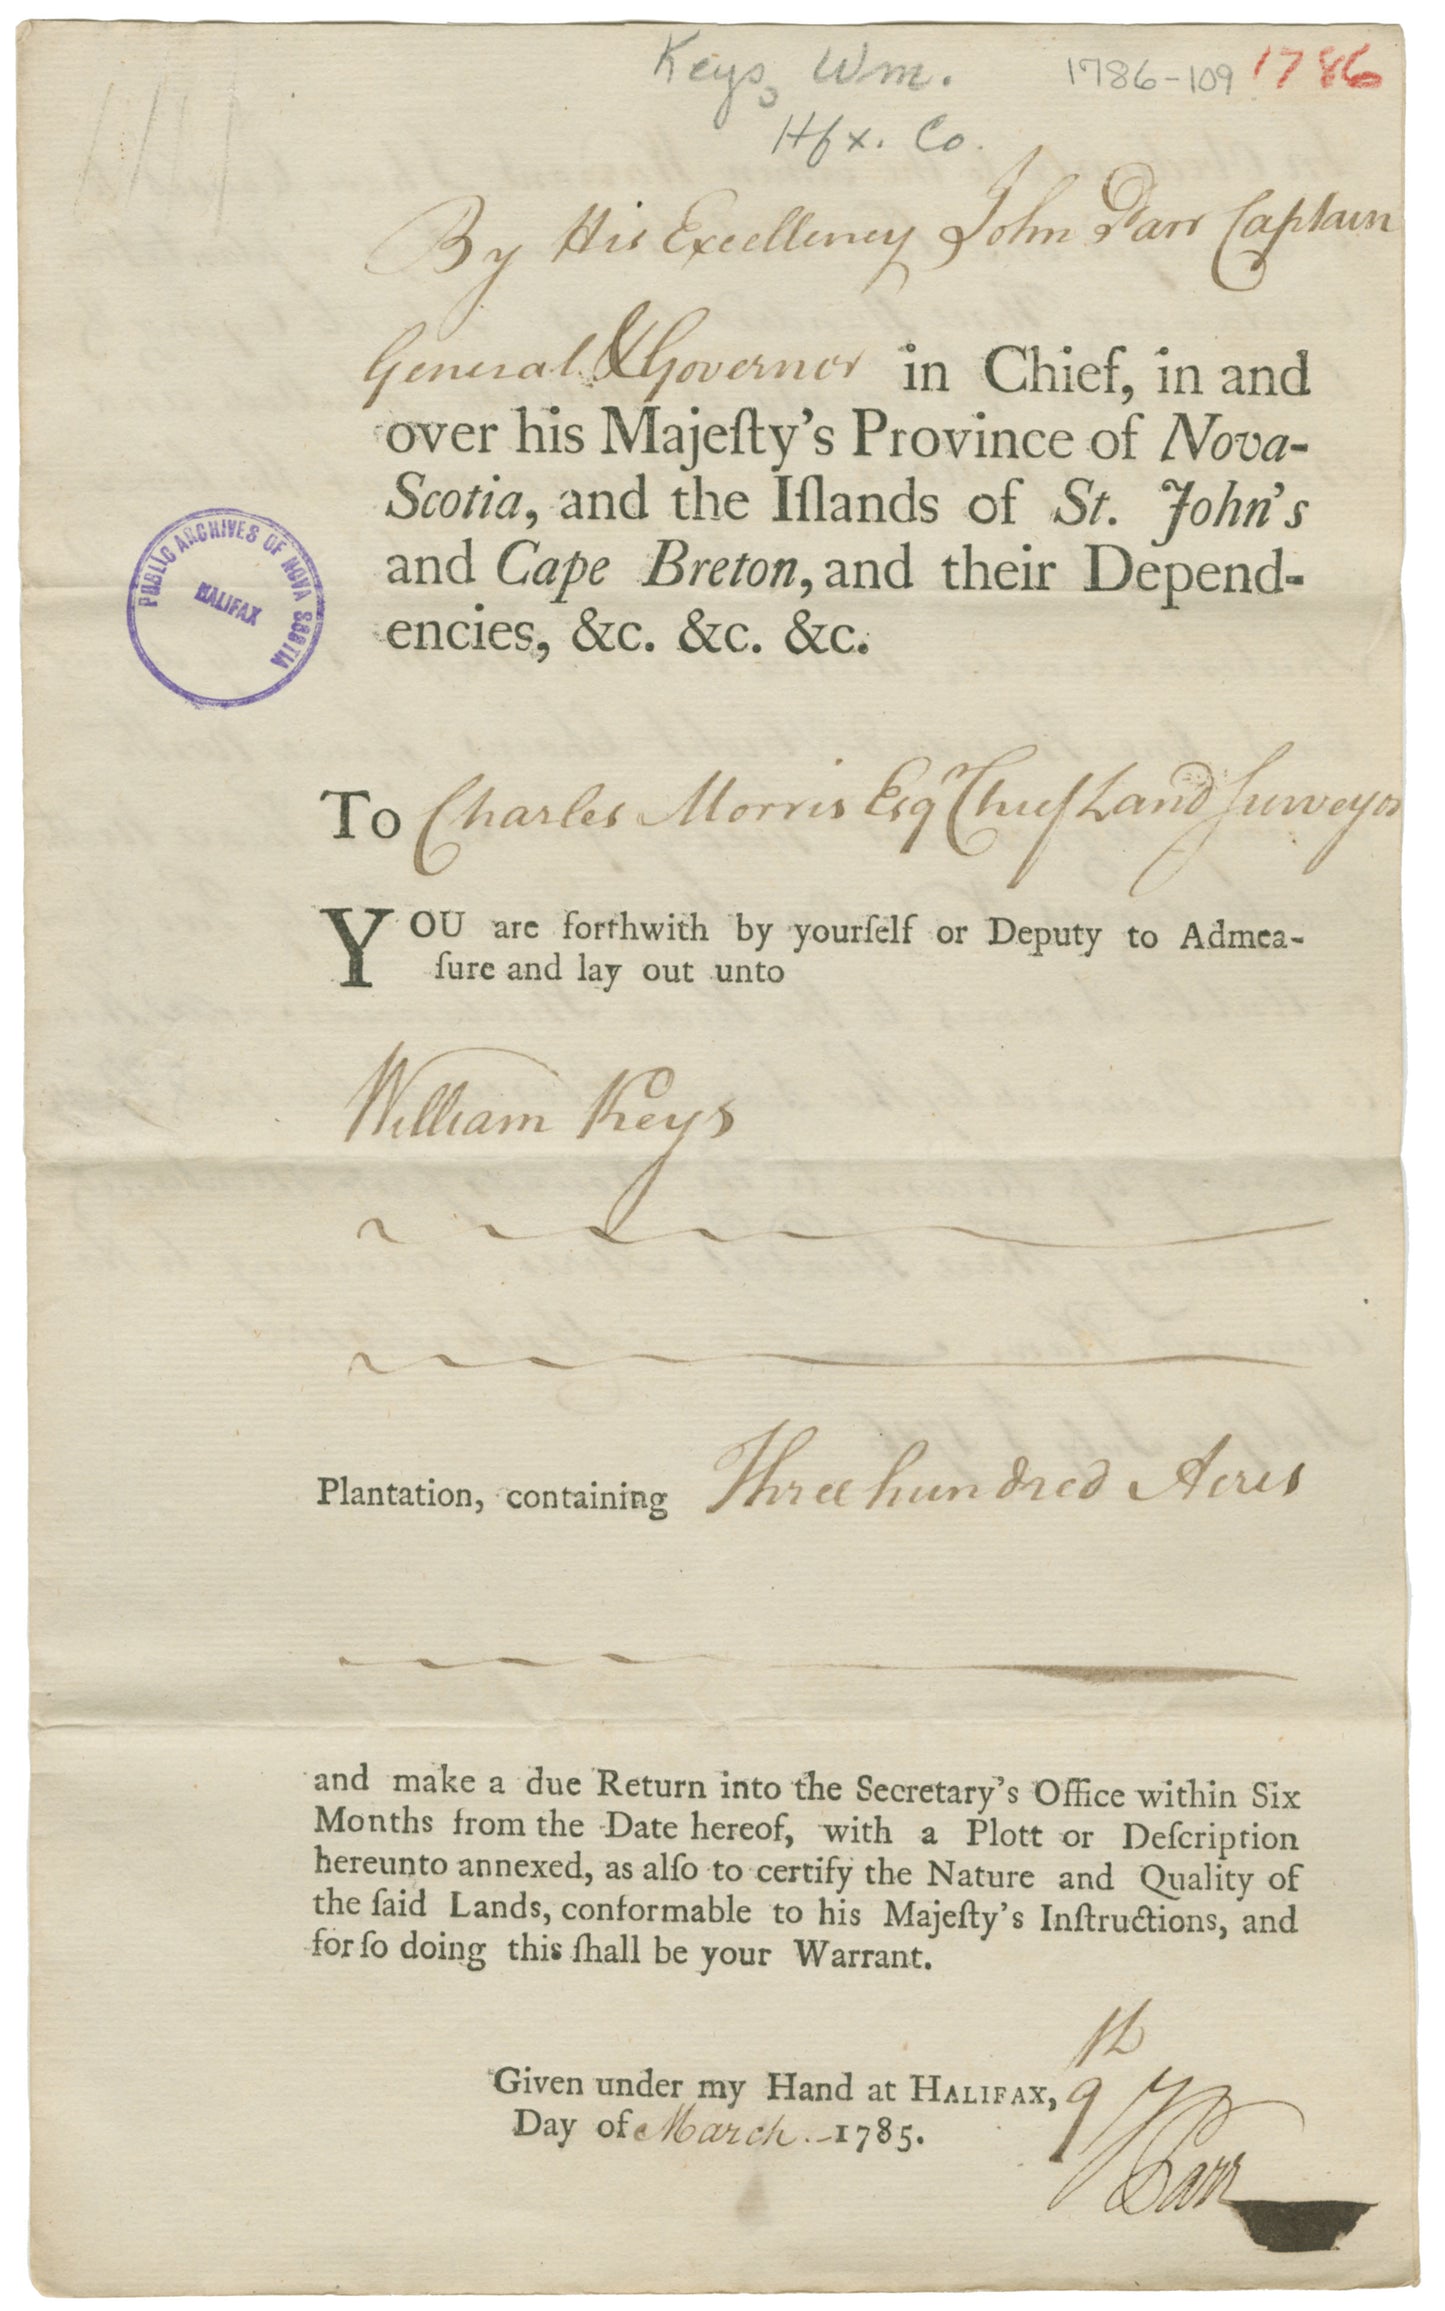 Keys, Wm.
1786-109
1786
Hfx. Co.
By His Excellency John Parr Captain
General & Governor in Chief, in and
over his Majeſty's Province of Nova-
Scotia, and the Iſlands of St. John's
and Cape Breton, and their Depend-
encies, &c. &c. &c.
PUBLIC ARCHIVES OF NOVA SCOTIA
HALIFAX
To Charles Morris Esqr Chief Land Surveyor
YOU are forthwith by yourſelf or Deputy to Admea-
ſure and lay out unto
William Keys
Plantation, containing Three hundred Acres
and make a due Return into the Secretary's Office within Six
Months from the Date hereof, with a Plott or Deſcription
hereunto annexed, as alſo to certify the Nature and Quality of
the ſaid Lands, conformable to his Majeſty's Inſtructions, and
for ſo doing this ſhall be your Warrant.
Given under my Hand at HALIFAX, 9th
Day of March 1785.
J Parr